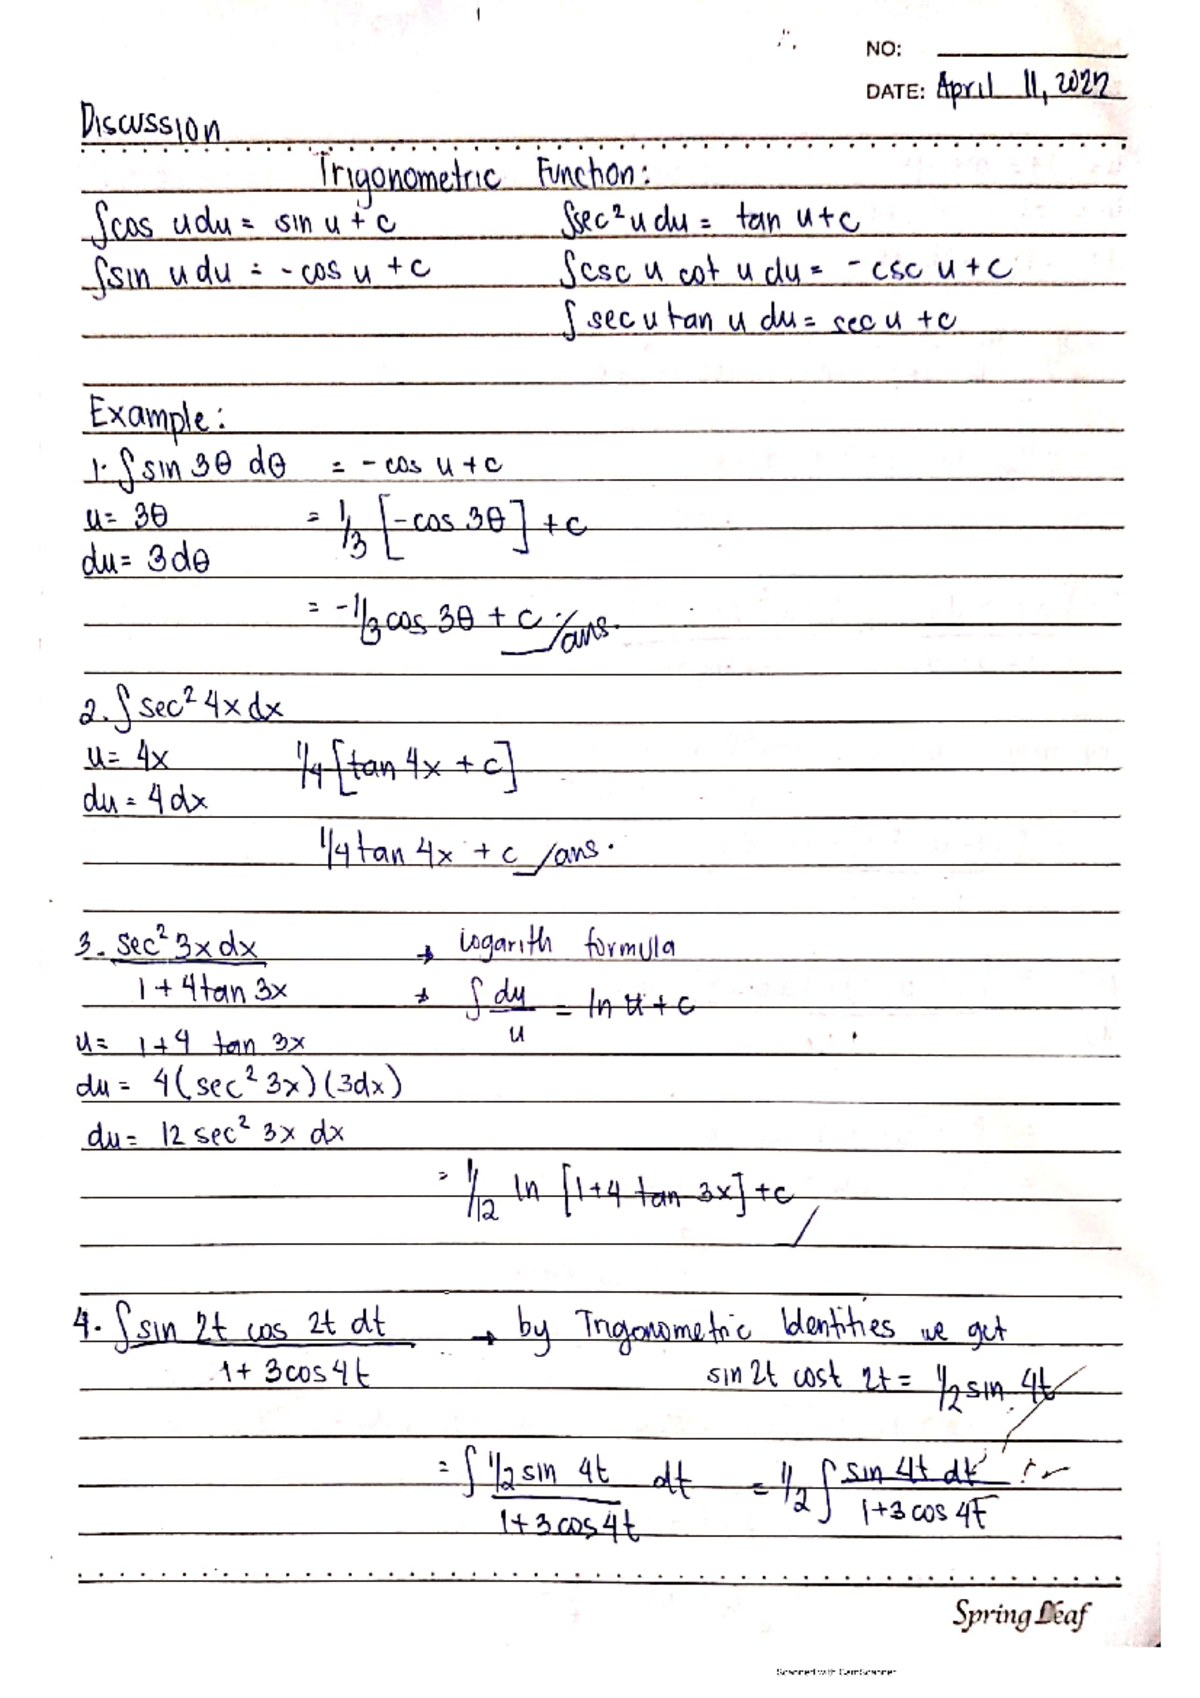 NO:
DATE: April 11, 2022
Discussion
Trigonometric Function:
∫cos u du = sin u + c ∫sec² u du = tan u + c
∫sin u du = - cos u + c ∫csc u cot u du = - csc u + c
∫ sec u tan u du = sec u + c
Example:
1. ∫ sin 3θ dθ = - cos u + c
u = 3θ = 1/3 [-cos 3θ] + c
du = 3dθ
= -1/3 cos 3θ + c //ans.
2. ∫ sec² 4x dx
u = 4x 1/4 [tan 4x + c]
du = 4 dx
1/4 tan 4x + c //ans.
3. sec² 3x dx / 1 + 4 tan 3x → logarith formula
→ ∫ du/u = ln u + c
u = 1 + 4 tan 3x
du = 4(sec² 3x)(3dx)
du = 12 sec² 3x dx
= 1/12 ln [1+4 tan 3x] + c
4. ∫ sin 2t cos 2t dt / 1 + 3 cos 4t → by Trigonometric Identities we get
sin 2t cost 2t = 1/2 sin 4t
= ∫ 1/2 sin 4t / 1 + 3 cos 4t dt = 1/2 ∫ sin 4t dt / 1+3 cos 4t
Spring Leaf
Scanned with CamScanner